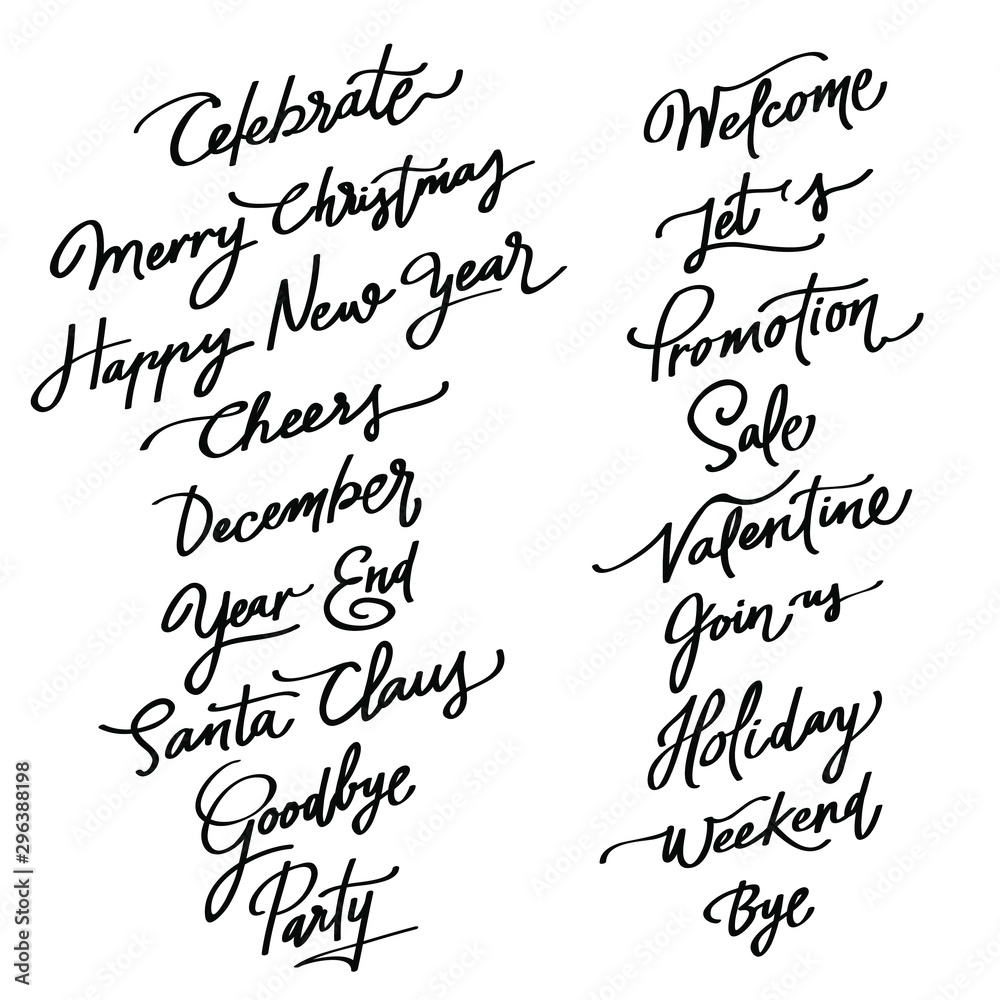 Celebrate
Merry Christmas
Happy New Year
Cheers
December
Year End
Santa Claus
Goodbye
Party
Welcome
Let's
Promotion
Sale
Valentine
Join us
Holiday
Weekend
Bye
Adobe Stock | #296388198